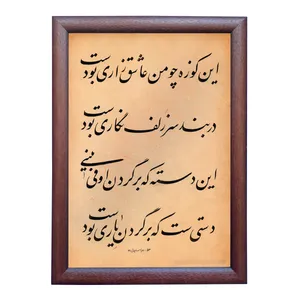 این کوزه چو من عاشق زاری بودست
در بند سر زلف نگاری بودست
این دسته که بر گردن او می‌بینی
دستی‌ست که بر گردن یاری بودست